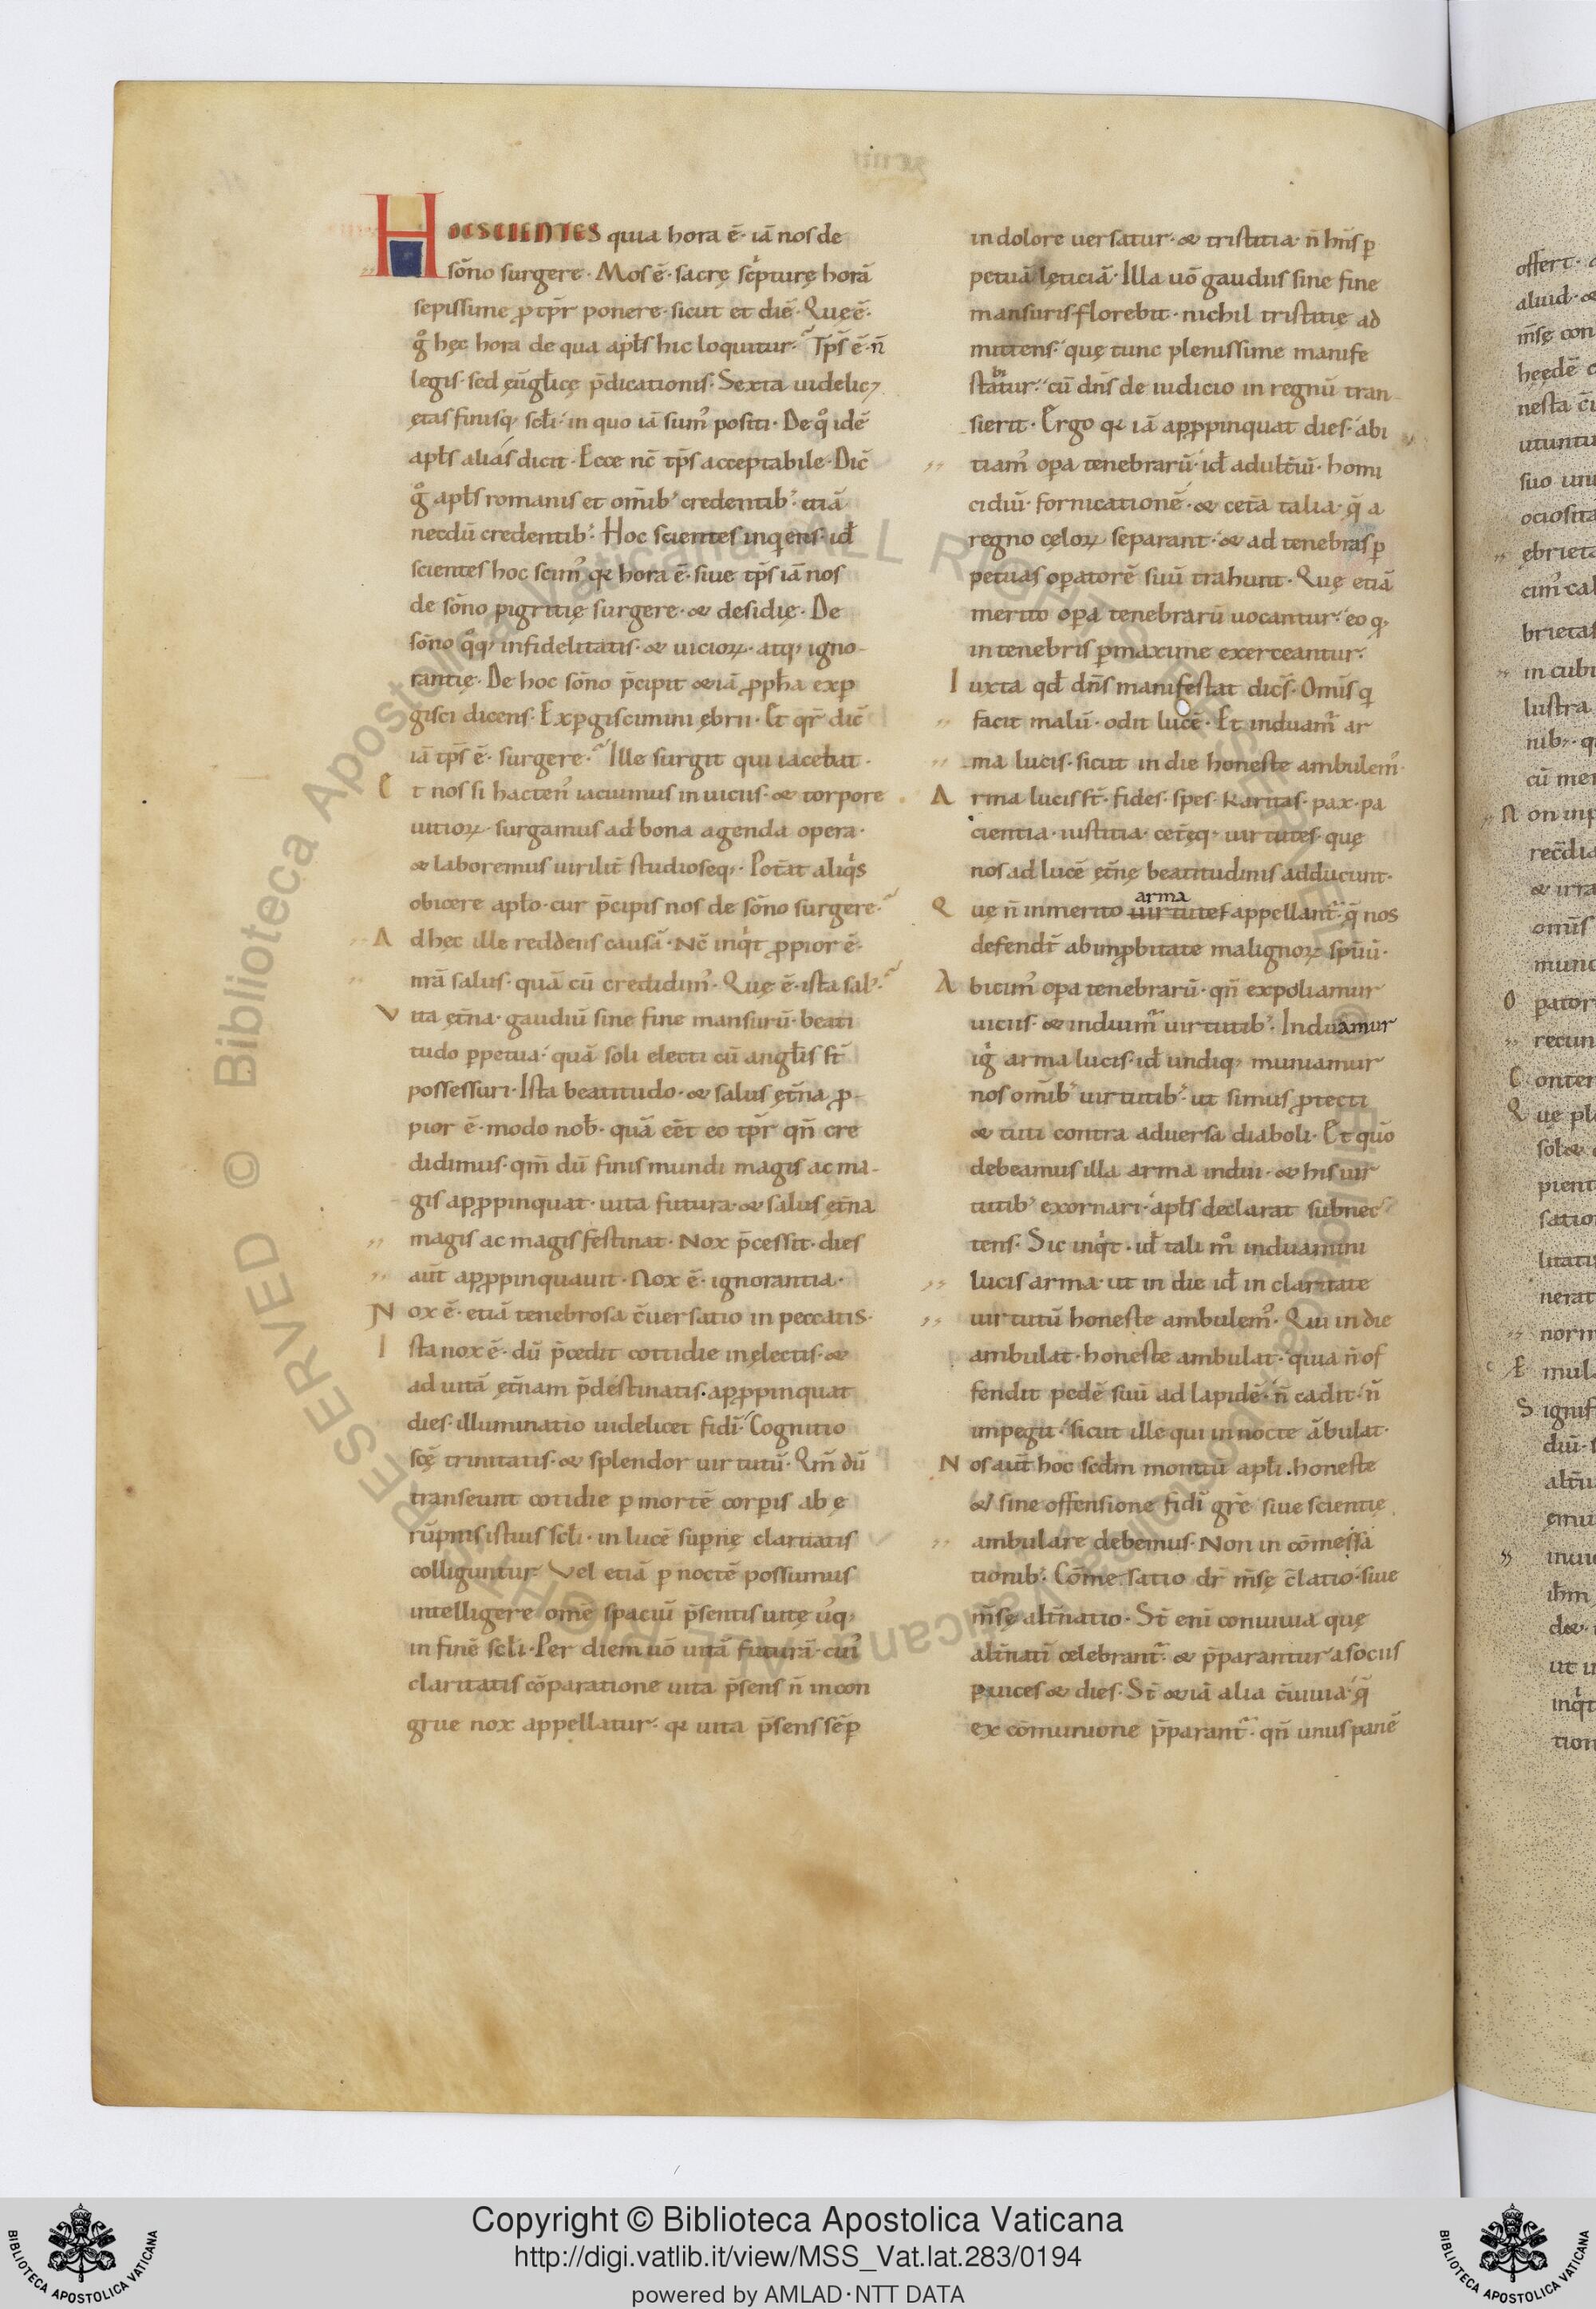 HOC SCIENTES quia hora ē· iā nos de
sōno surgere· Mos ē· sacrę sc̄pturę horā
sepissime p tp̄r ponere· sicut et diē· Quę ē·
g̊ hęc hora de qua apl̄s hic loquitur· Tp̄s ē· n̄
legis· sed ęu̅gl̄icę p̄dicationis· Sexta uidelic;
ętas finisq; scl̄i· in quo iā sum᾿ positi· De q̊ idē
apl̄s aliás dicit· Ecce nc̄ tp̄s acceptabile· Dic̄
g̊ apl̄s romanis et om̄ib᾿ credentib᾿· etiā
necdū credentib᾿· Hoc scientes inqens· id̄
scientes hoc scim᾿ qꝛ hora ē· siue tp̄s iā nos
de sōno pigritię surgere· & desidię· De
sōno q̊q; infidelitatis· & uicioꝝ· atq; igno-
rantię· De hoc sōno p̄cipit &iā ꝓph̄a exꝑ
gisci dicens· Exꝑgiscimini ębrii· Et qr̄ dic̄
iā tp̄s ē· surgere· Ille surgit qui iacebat·
Et nos si hacten᾿ iacuimus in uiciis· & torpore
uitioꝝ· surgamus ad bona agenda opera·
& laboremus uirilit̄ studioseq;· Pot̄at aliq̇s
obicere apl̄o· cur p̄cipis nos de sōno surgere·
Ad hęc ille reddens causā· Nc̄ inq̇t ꝓpior ē·
nr̄a salus· quā cū credidim᾿· Quę ē· ista sal᾿·
Vita ęt̄na· gaudiū sine fine mansurū· beati
tudo ꝑpetua· quā soli electi cū angl̄is st̄
possessuri· Ista beatitudo· & salus ęt̄na ꝓ-
pior ē· modo nob̄· quā eēt eo tp̄r qn̄ cre
didimus· qm̄ dū finis mundi magis ac ma-
gis apꝓpinquat· uita futura· & salus ęt̄na
magis ac magis festinat· Nox p̄cessit· dies
aut̄ apꝓpinquauit· Nox ē· ignorantia·
Nox ē· etiā tenebrosa c̄uersatio in peccatis·
Ista nox ē· dū p̄cedit cottidie in electis· &
ad uitā ęt̄nam p̄destinatis· apꝓpinquat
dies· illuminatio uidelicet fidi· Cognitio
scę̄ trinitatis· & splendor uirtutū· Qm̄ dū
transeunt cotidie ꝑ mortē corꝑis ab ę
rūpnis istius scl̄i· in lucē suꝑnę claritatis
colliguntur· Vel etiā ꝑ noctē possumus
intelligere omē spaciū p̄sentis uitę u᾿q;
in finē scl̄i· Per diem uō uitā futurā· cui᾿
claritatis cōparatione uita p̄sens n̄ incon
grue nox appellatur· qꝛ uita p̄sens sēꝑ
in dolore uersatur· & tristitia· n̄ hn̄s ꝑ
petuā lęticiā· Illa uō gaudiis sine fine
mansuris florebit· nichil tristitię ad
mittens· quę tunc plenissime manife
stabitur· cū dn̄s de iudicio in regnū tran
sierit· Ergo qꝛ iā apꝓpinquat dies· abi
tiam᾿ oꝑa tenebrarū· id̄ adult̄iū· homi
cidiū· fornicationē· & cet̄a talia· q̄ a
regno cęloꝝ separant· & ad tenebras ꝑ
petuas oꝑatorē suū trahunt· Quę etiā
merito oꝑa tenebrarū uocantur· eo q;
in tenebris ꝑmaxime exerceantur·
Iuxta qd̄ dn̄s manifestat dic̄s· Omīs q
facit malū· odit lucē· Et induam᾿ ar
ma lucis· sicut in die honeste ambulem᾿·
Arma lucis st̄· fides· spes· karitas· pax· pa
cientia· iustitia· cet̄ęq; uirtutes· quę
nos ad lucē ęt̄nę beatitudinis adducunt·
arma
Quę n̄ inmerito uirtutes appellant᾿· q̄ nos
defendt̄ ab inꝓbitate malignoꝝ sp̄uū·
Abicim᾿ oꝑa tenebrarū· qn̄ expoliamur
uiciis· & induim᾿ uirtutib᾿· Induamur
ig̊ arma lucis· id̄ undiq; muniamur
nos om̄ib᾿ uirtutib᾿· ut simus ꝓtecti
& tuti contra aduersa diaboli· Et quō
debeamus illa arma indui· & his uir
tutib᾿ exornari· apl̄s declarat subnec
tens· Sic inq̇t· id̄ tali m̊ induamini
lucis arma· ut in die id̄ in claritate
uirtutū honeste ambulem᾿· Qui in die
ambulat· honeste ambulat· quia n̄ of
fendit pedē suū ad lapidē· n̄ cadit· n̄
impegit· sicut ille qui in nocte ābulat·
Nos aut̄ hoc scd̄m monitū apl̄i· honeste
& sine offensione fidi gr̄e siue scientię
ambulare debemus· Non in cōmessa
tionib᾿· Cōmesatio dr̄ m̄sę c̄latio· siue
m̄sę alt̄natio· St̄ eni conuiuia quę
alt̄nati celebrant᾿· & p̄parantur a sociis
ꝑ uices & dies· St̄ &iā alia c̄uiuia· q̄
ex cōmunione p̄parant᾿· qn̄ unus panē
offert·
aliud·
m̄sę con
nesta
utuntu
suo un
ociosita
ębrieta
cim᾿ cal
brietas
in cubi
lustra
cū men
on inp
& irra
omīs
mund
patore
recun
onten
ue pl
pient
satio
litati
nerat
norm
mula
ignif
Copyright © Biblioteca Apostolica Vaticana
http://digi.vatlib.it/view/MSS_Vat.lat.283/0194
powered by AMLAD·NTT DATA
BIBLIOTECA APOSTOLICA VATICANA
BIBLIOTECA APOSTOLICA VATICANA
© Biblioteca Apostolica Vaticana ALL RIGHTS RESERVED
© Biblioteca Apostolica Vaticana ALL RIGHTS RESERVED